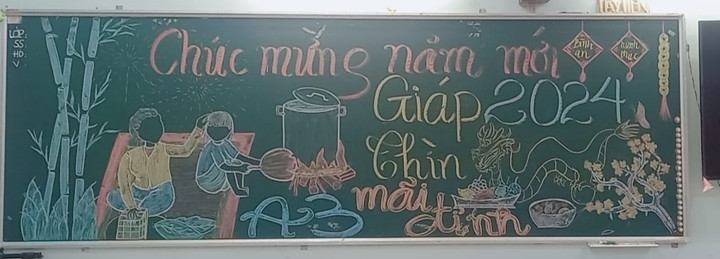 LỚP:
SS:
HD:
V:
Chúc mừng năm mới
Bình
an
hạnh
phúc
Giáp 2024
Thìn
A3 mãi
đỉnh